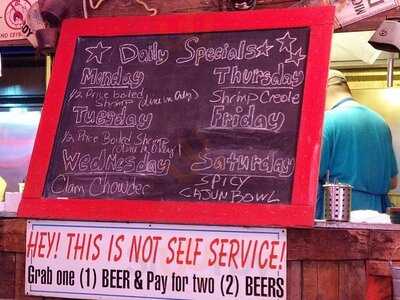 Daily Specials
Monday
1/2 Price Boiled
Shrimp (Dine in Only)
Tuesday
1/2 Price Boiled Shrimp
(Dine in Only)
Wednesday
Clam Chowder
Thursday
Shrimp Creole
Friday
Saturday
SPICY
CAJUN BOWL
HEY! THIS IS NOT SELF SERVICE!
Grab one (1) BEER & Pay for two (2) BEERS